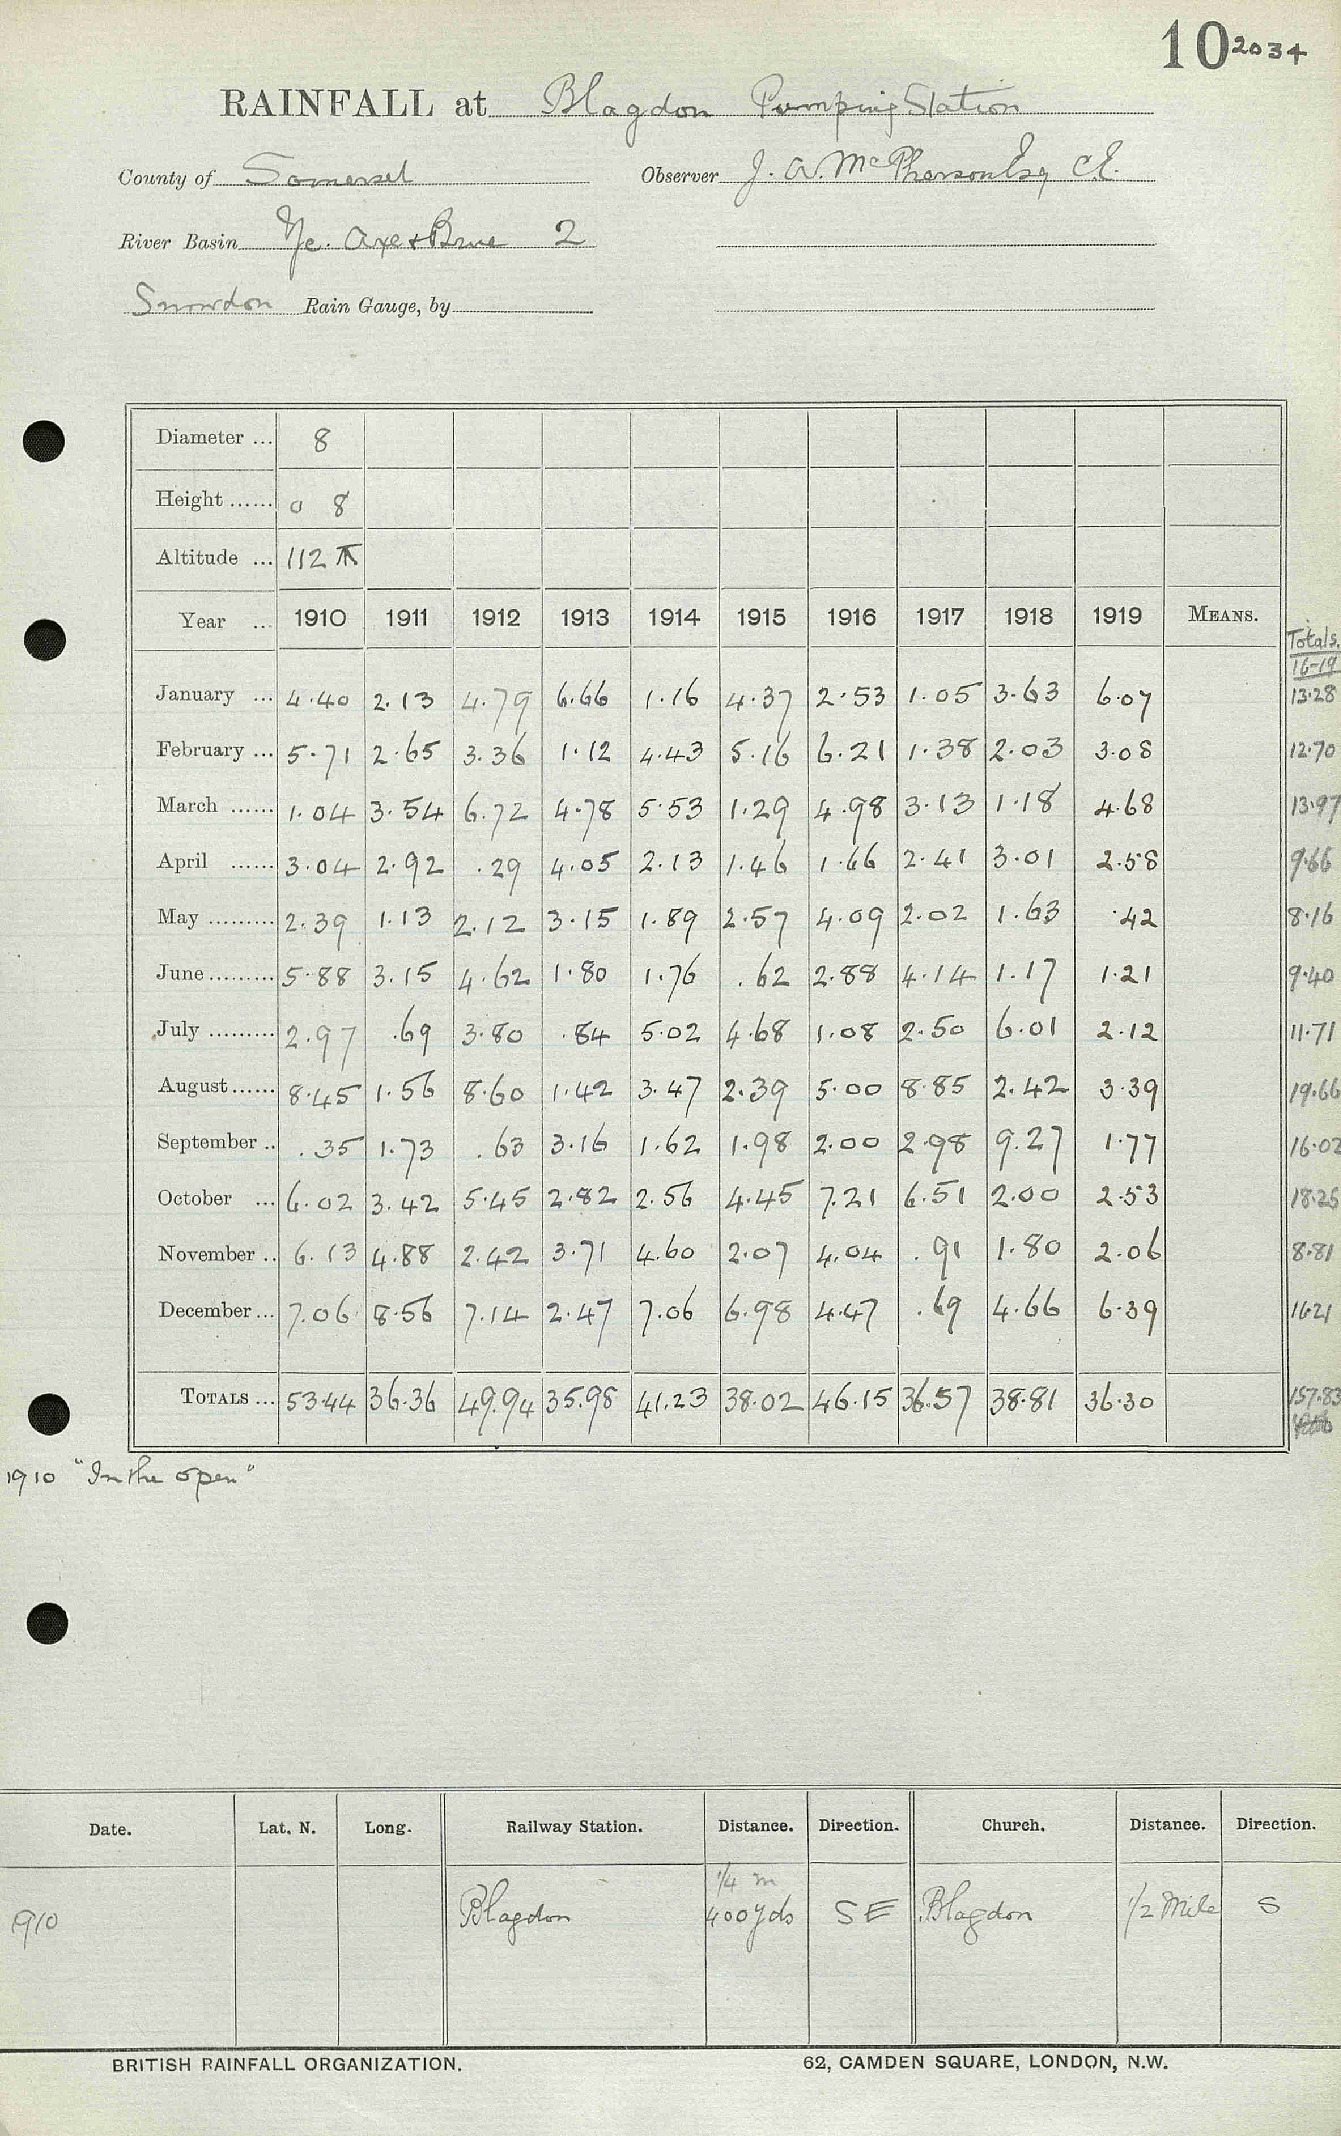 10 2034
RAINFALL at Blagdon Pumping Station
County of Somerset Observer J. A. McPherson Esq C.E.
River Basin Axe & Brue 2
Snowdon Rain Gauge, by
Diameter ... 8
Height ...... 0 8
Altitude ... 112
Year ... 1910 1911 1912 1913 1914 1915 1916 1917 1918 1919 MEANS. Totals. 16-19
January ... 4.40 2.13 4.79 6.66 1.16 4.37 2.53 1.05 3.63 6.07 13.28
February ... 5.71 2.65 3.36 1.12 4.43 5.16 6.21 1.38 2.03 3.08 12.70
March ...... 1.04 3.54 6.72 4.78 5.53 1.29 4.98 3.13 1.18 4.68 13.97
April ...... 3.04 2.92 .29 4.05 2.13 1.46 1.66 2.41 3.01 2.58 9.66
May ......... 2.39 1.13 2.12 3.15 1.89 2.57 4.09 2.02 1.63 .42 8.16
June ......... 5.88 3.15 4.62 1.80 1.76 .62 2.88 4.14 1.17 1.21 9.40
July ......... 2.97 .69 3.80 .84 5.02 4.68 1.08 2.50 6.01 2.12 11.71
August ...... 8.45 1.56 8.60 1.42 3.47 2.39 5.00 8.85 2.42 3.39 19.66
September .. .35 1.73 .63 3.16 1.62 1.98 2.00 2.98 9.27 1.77 16.02
October ... 6.02 3.42 5.45 2.82 2.56 4.45 7.21 6.51 2.00 2.53 18.25
November .. 6.13 4.88 2.42 3.71 4.60 2.07 4.04 .91 1.80 2.06 8.81
December ... 7.06 8.56 7.14 2.47 7.06 6.98 4.47 .69 4.66 6.39 16.21
TOTALS ... 53.44 36.36 49.94 35.98 41.23 38.02 46.15 36.57 38.81 36.30 157.83
1910 "In the open"
Date. Lat. N. Long. Railway Station. Distance. Direction. Church. Distance. Direction.
1/4 m
1910 Blagdon 400 yds SE Blagdon 1/2 Mile S
BRITISH RAINFALL ORGANIZATION. 62, CAMDEN SQUARE, LONDON, N.W.